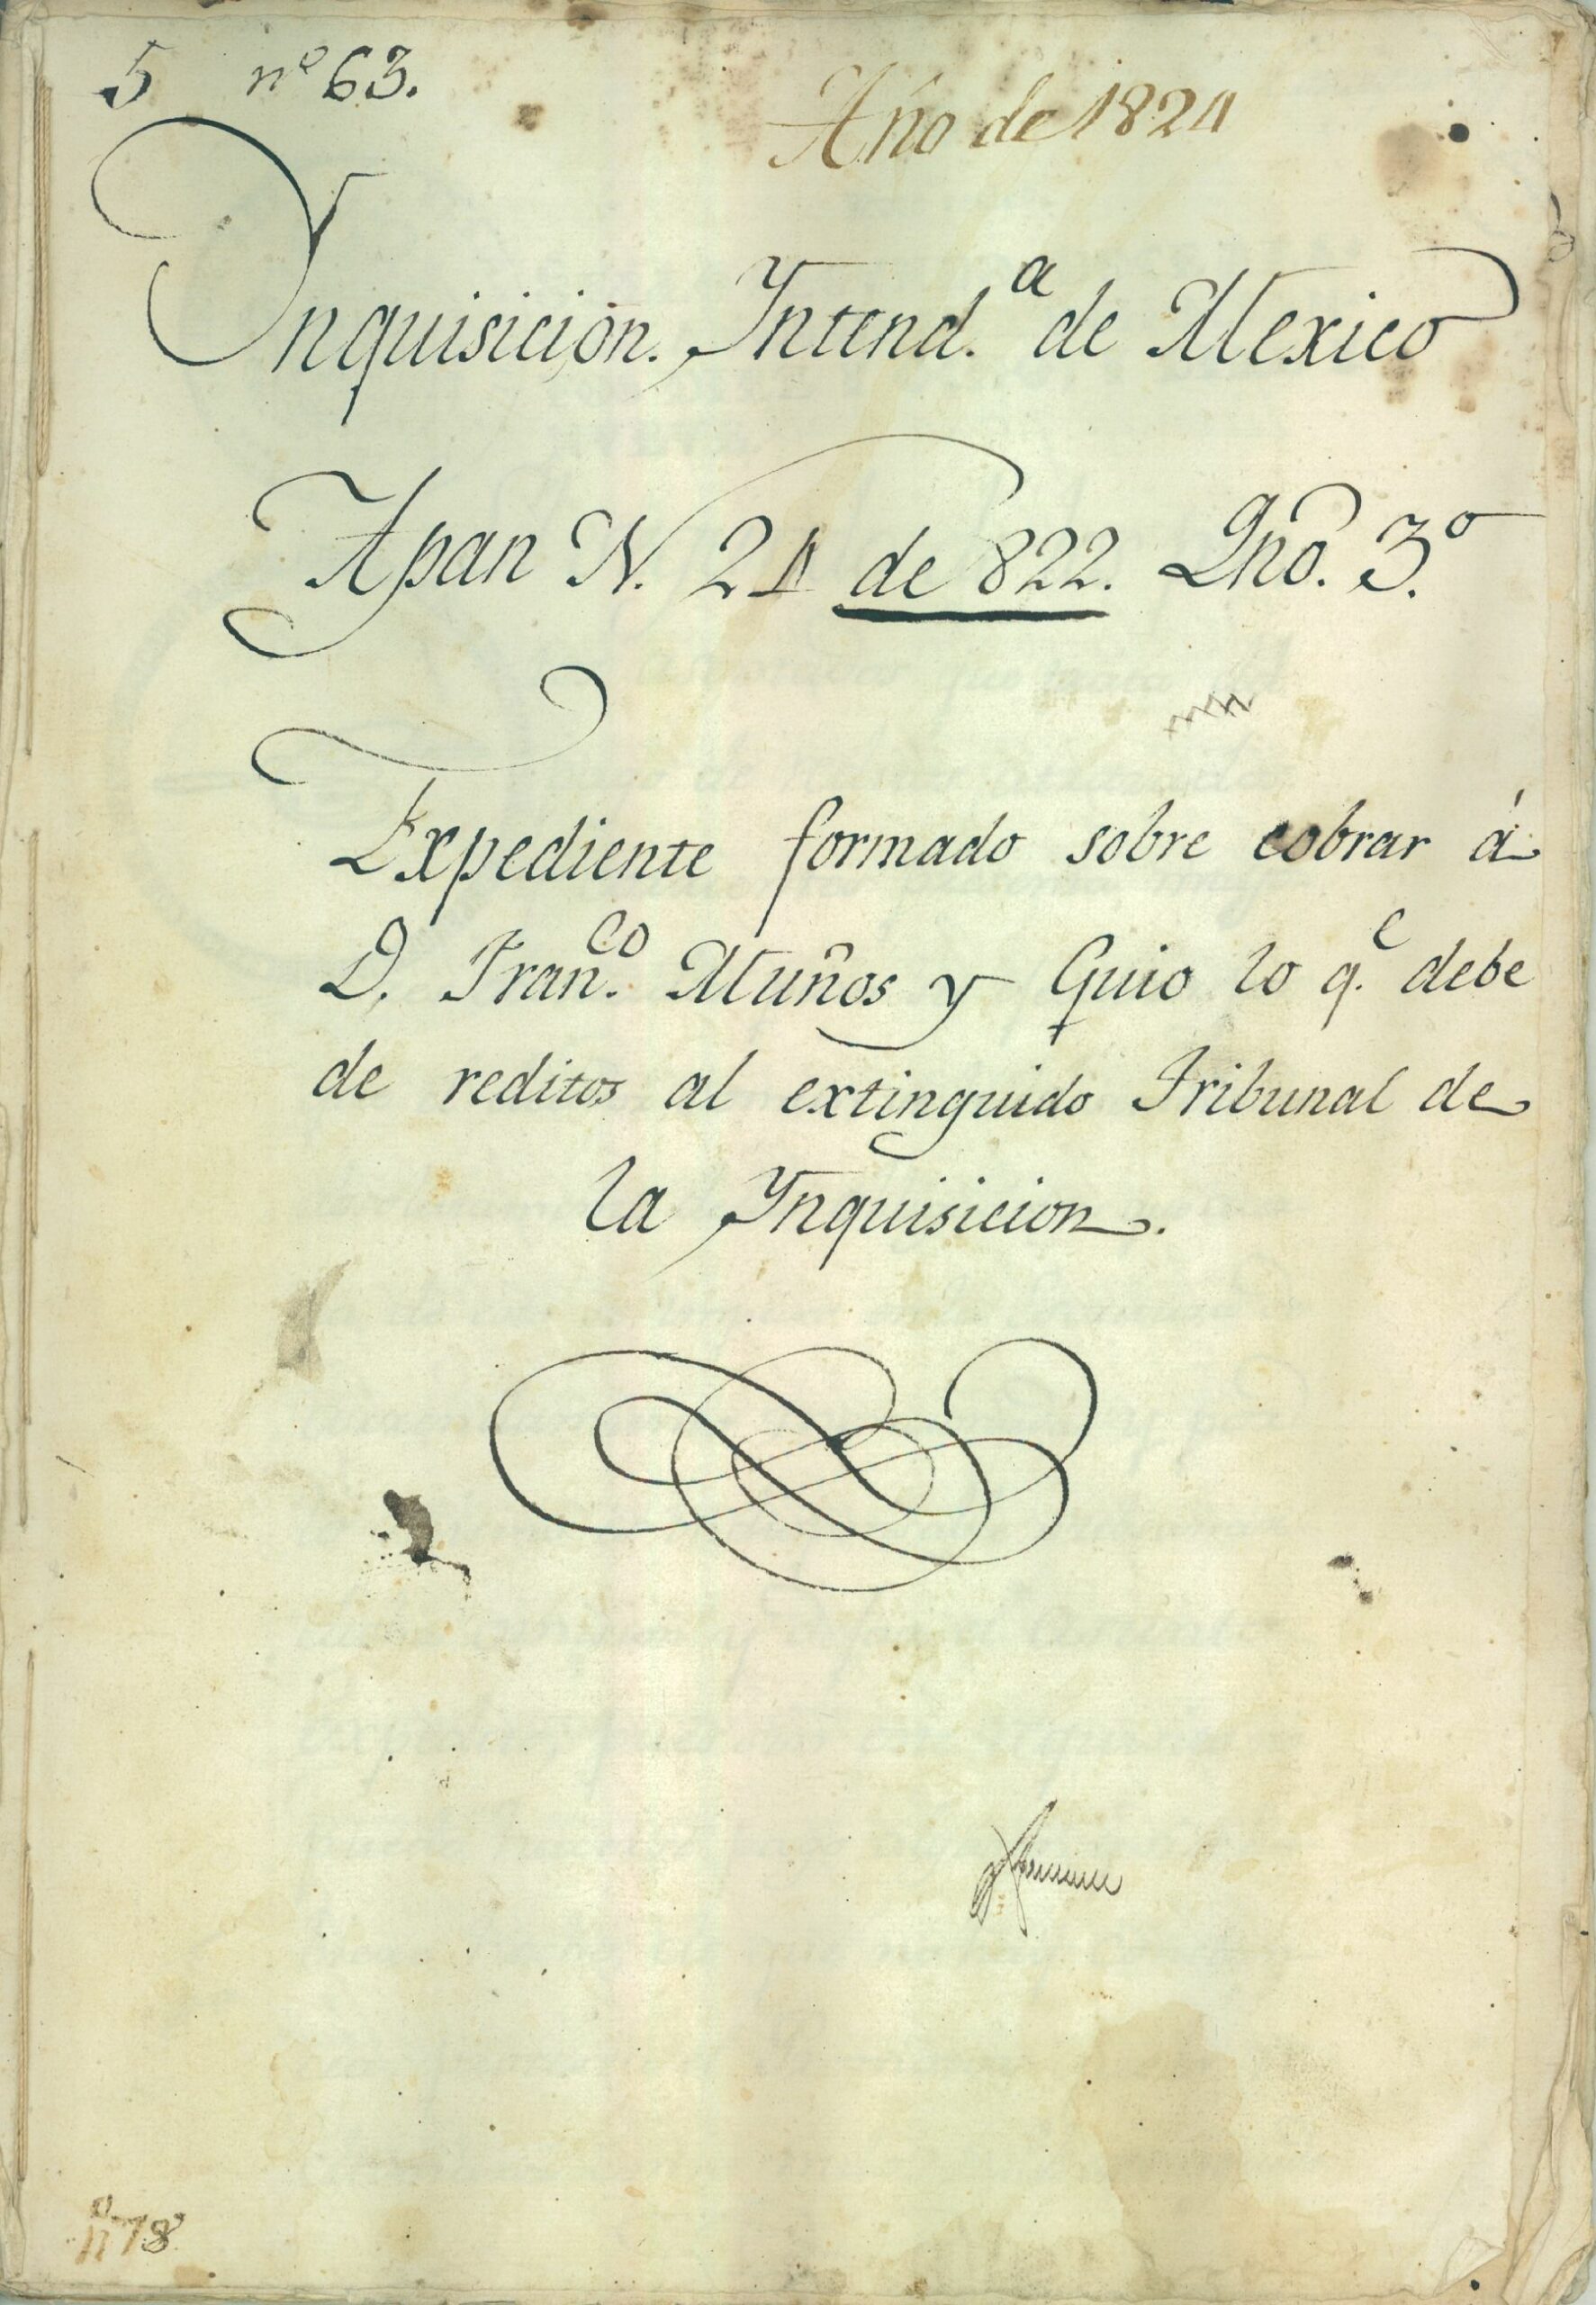 5 nº 63.
Año de 1824
Ynquisicion. Yntend.ª de Mexico
Apan N. 21 de 822. Qño. 3.º
Expediente formado sobre cobrar á
D. Fran.co Muños y Guio lo q.e debe
de reditos al extinguido Tribunal de
la Ynquisicion.
nº 78